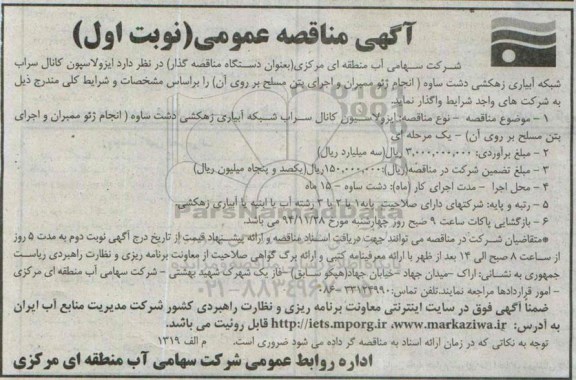 آگهی مناقصه عمومی(نوبت اول)
شرکت سهامی آب منطقه ای مرکزی(بعنوان دستگاه مناقصه گذار) در نظر دارد ایزولاسیون کانال سراب
شبکه آبیاری زهکشی دشت ساوه ( انجام ژئو ممبران و اجرای بتن مسلح بر روی آن) را براساس مشخصات و شرایط کلی مندرج ذیل
به شرکت های واجد شرایط واگذار نماید.
۱ – موضوع مناقصه – نوع مناقصه: ایزولاسیون کانال سراب شبکه آبیاری زهکشی دشت ساوه ( انجام ژئو ممبران و اجرای
بتن مسلح بر روی آن) – یک مرحله ای
۲ – مبلغ برآوردی: ۳,۰۰۰,۰۰۰,۰۰۰ ریال(سه میلیارد ریال)
۳ – مبلغ تضمین شرکت در مناقصه(ریال):۱۵۰,۰۰۰,۰۰۰ریال(یکصد و پنجاه میلیون ریال)
۴ – محل اجرا – مدت اجرای کار (ماه): دشت ساوه – ۱۵ ماه
۵ – رتبه و پایه: شرکتهای دارای صلاحیت پایه۱ یا ۲ یا ۳ رشته آب یا ابنیه یا آبیاری زهکشی.
۶ – بازگشایی پاکات ساعت ۹ صبح روز چهارشنبه مورخ ۹۲/۱۲/۲۸ می باشد.
*متقاضیان شرکت در مناقصه می توانند جهت دریافت اسناد مناقصه و ارائه پیشنهاد قیمت از تاریخ درج آگهی نوبت دوم به مدت ۵ روز
از ساعت ۸ صبح الی ۱۴ بعد از ظهر با ارائه معرفینامه کتبی و ارائه برگ گواهی صلاحیت از معاونت برنامه ریزی و نظارت راهبردی ریاست
جمهوری به نشانی: اراک –میدان جهاد –خیابان جهاد(هپکو سابق) –فاز یک شهرک شهید بهشتی – شرکت سهامی آب منطقه ای مرکزی
– امور قراردادها مراجعه نمایند.تلفن تماس:
ضمناً آگهی فوق در سایت اینترنتی معاونت برنامه ریزی و نظارت راهبردی کشور شرکت مدیریت منابع آب ایران
به آدرس: http://iets.mporg.ir ،www.markaziwa.ir قابل رویت می باشد.
توجه به نکاتی که در زمان ارائه اسناد به مناقصه گر داده می شود ضروری است. م الف ۱۳۱۹
اداره روابط عمومی شرکت سهامی آب منطقه ای مرکزی
ParsNamadData